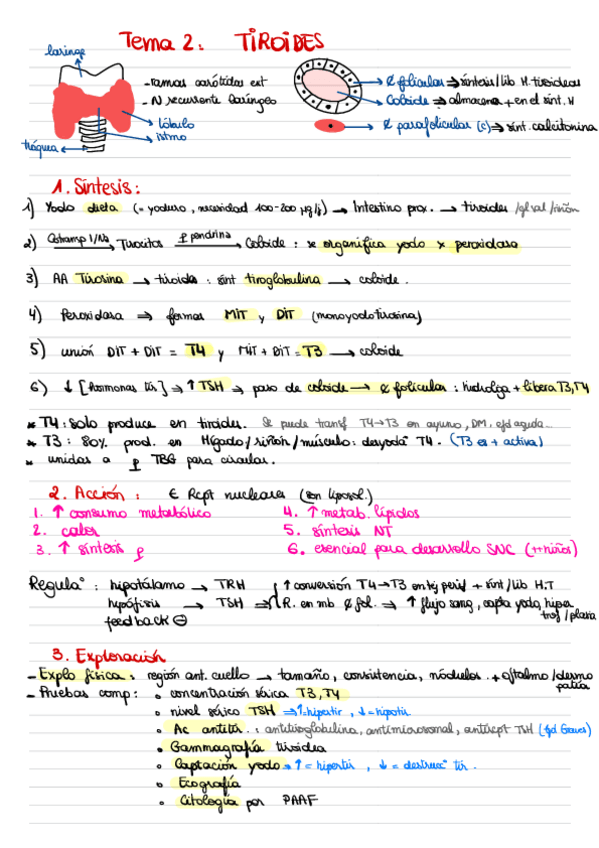 Tema 2: TIROIDES
laringe
- ramas carótidas ext
- N recurrente laríngeo
lóbulo
istmo
tráquea
¢ folicular ⇒ síntesis/lib H. tiroideas
Coloide → almacena + en el sínt. H
¢ parafolicular (c) → sínt. calcitonina
1. Síntesis:
1) Yodo dieta (= yoduro, necesidad 100-200 µg/j) → Intestino prox. → tiroides /gl sal /riñón
2) Cotransp I/Na → Tirocitos p pendrina → Coloide : se organifica yodo x peroxidasa
3) AA Tirosina → tiroide : sínt tiroglobulina → coloide.
4) Peroxidasa ⇒ formar MIT y DIT (monoyodotirosina)
5) unión DIT + DIT = T4 y MIT + DIT = T3 → coloide
6) ↓ [Hormonas tir] ⇒ ↑ TSH ⇒ paso de coloide → ¢ folicular : hidroliza + libera T3, T4
* T4: solo produce en tiroides. Se puede transf T4→T3 en ayuno, DM, efd aguda.
* T3: 80% prod. en Hígado/riñón/músculo: desyodaº T4. (T3 es + activa)
* unidas a p TBG para circular.
2. Acción: ∈ Rcpt nucleares (son liposol.)
1. ↑ consumo metabólico
2. calor
3. ↑ síntesis p
4. ↑ metab. lípidos
5. síntesis NT
6. esencial para desarrollo SNC (++niños)
Regulaº: hipotálamo → TRH
hipófisis → TSH ⇒
feedback ⊖
↑ conversión T4→T3 en tej perif + sínt/lib H.T
R. en mb ¢ fol. ⇒ ↑ flujo sang, capta yodo, hiper
trof/plasia
3. Exploración
- Explo física: región ant. cuello → tamaño, consistencia, nódulos. + oftalmo/dermo
patía
- Pruebas comp: • concentración sérica T3, T4
• nivel sérico TSH ⇒ ↑=hipertir, ↓=hipotir
• Ac antitir.: antitiroglobulina, antimicrosomal, antircpt TSH (efd Graves)
• Gammagrafía tiroidea
• Captación yodo → ↑ = hipertir, ↓ = destrucº tir.
• Ecografía
• Citología por PAAF